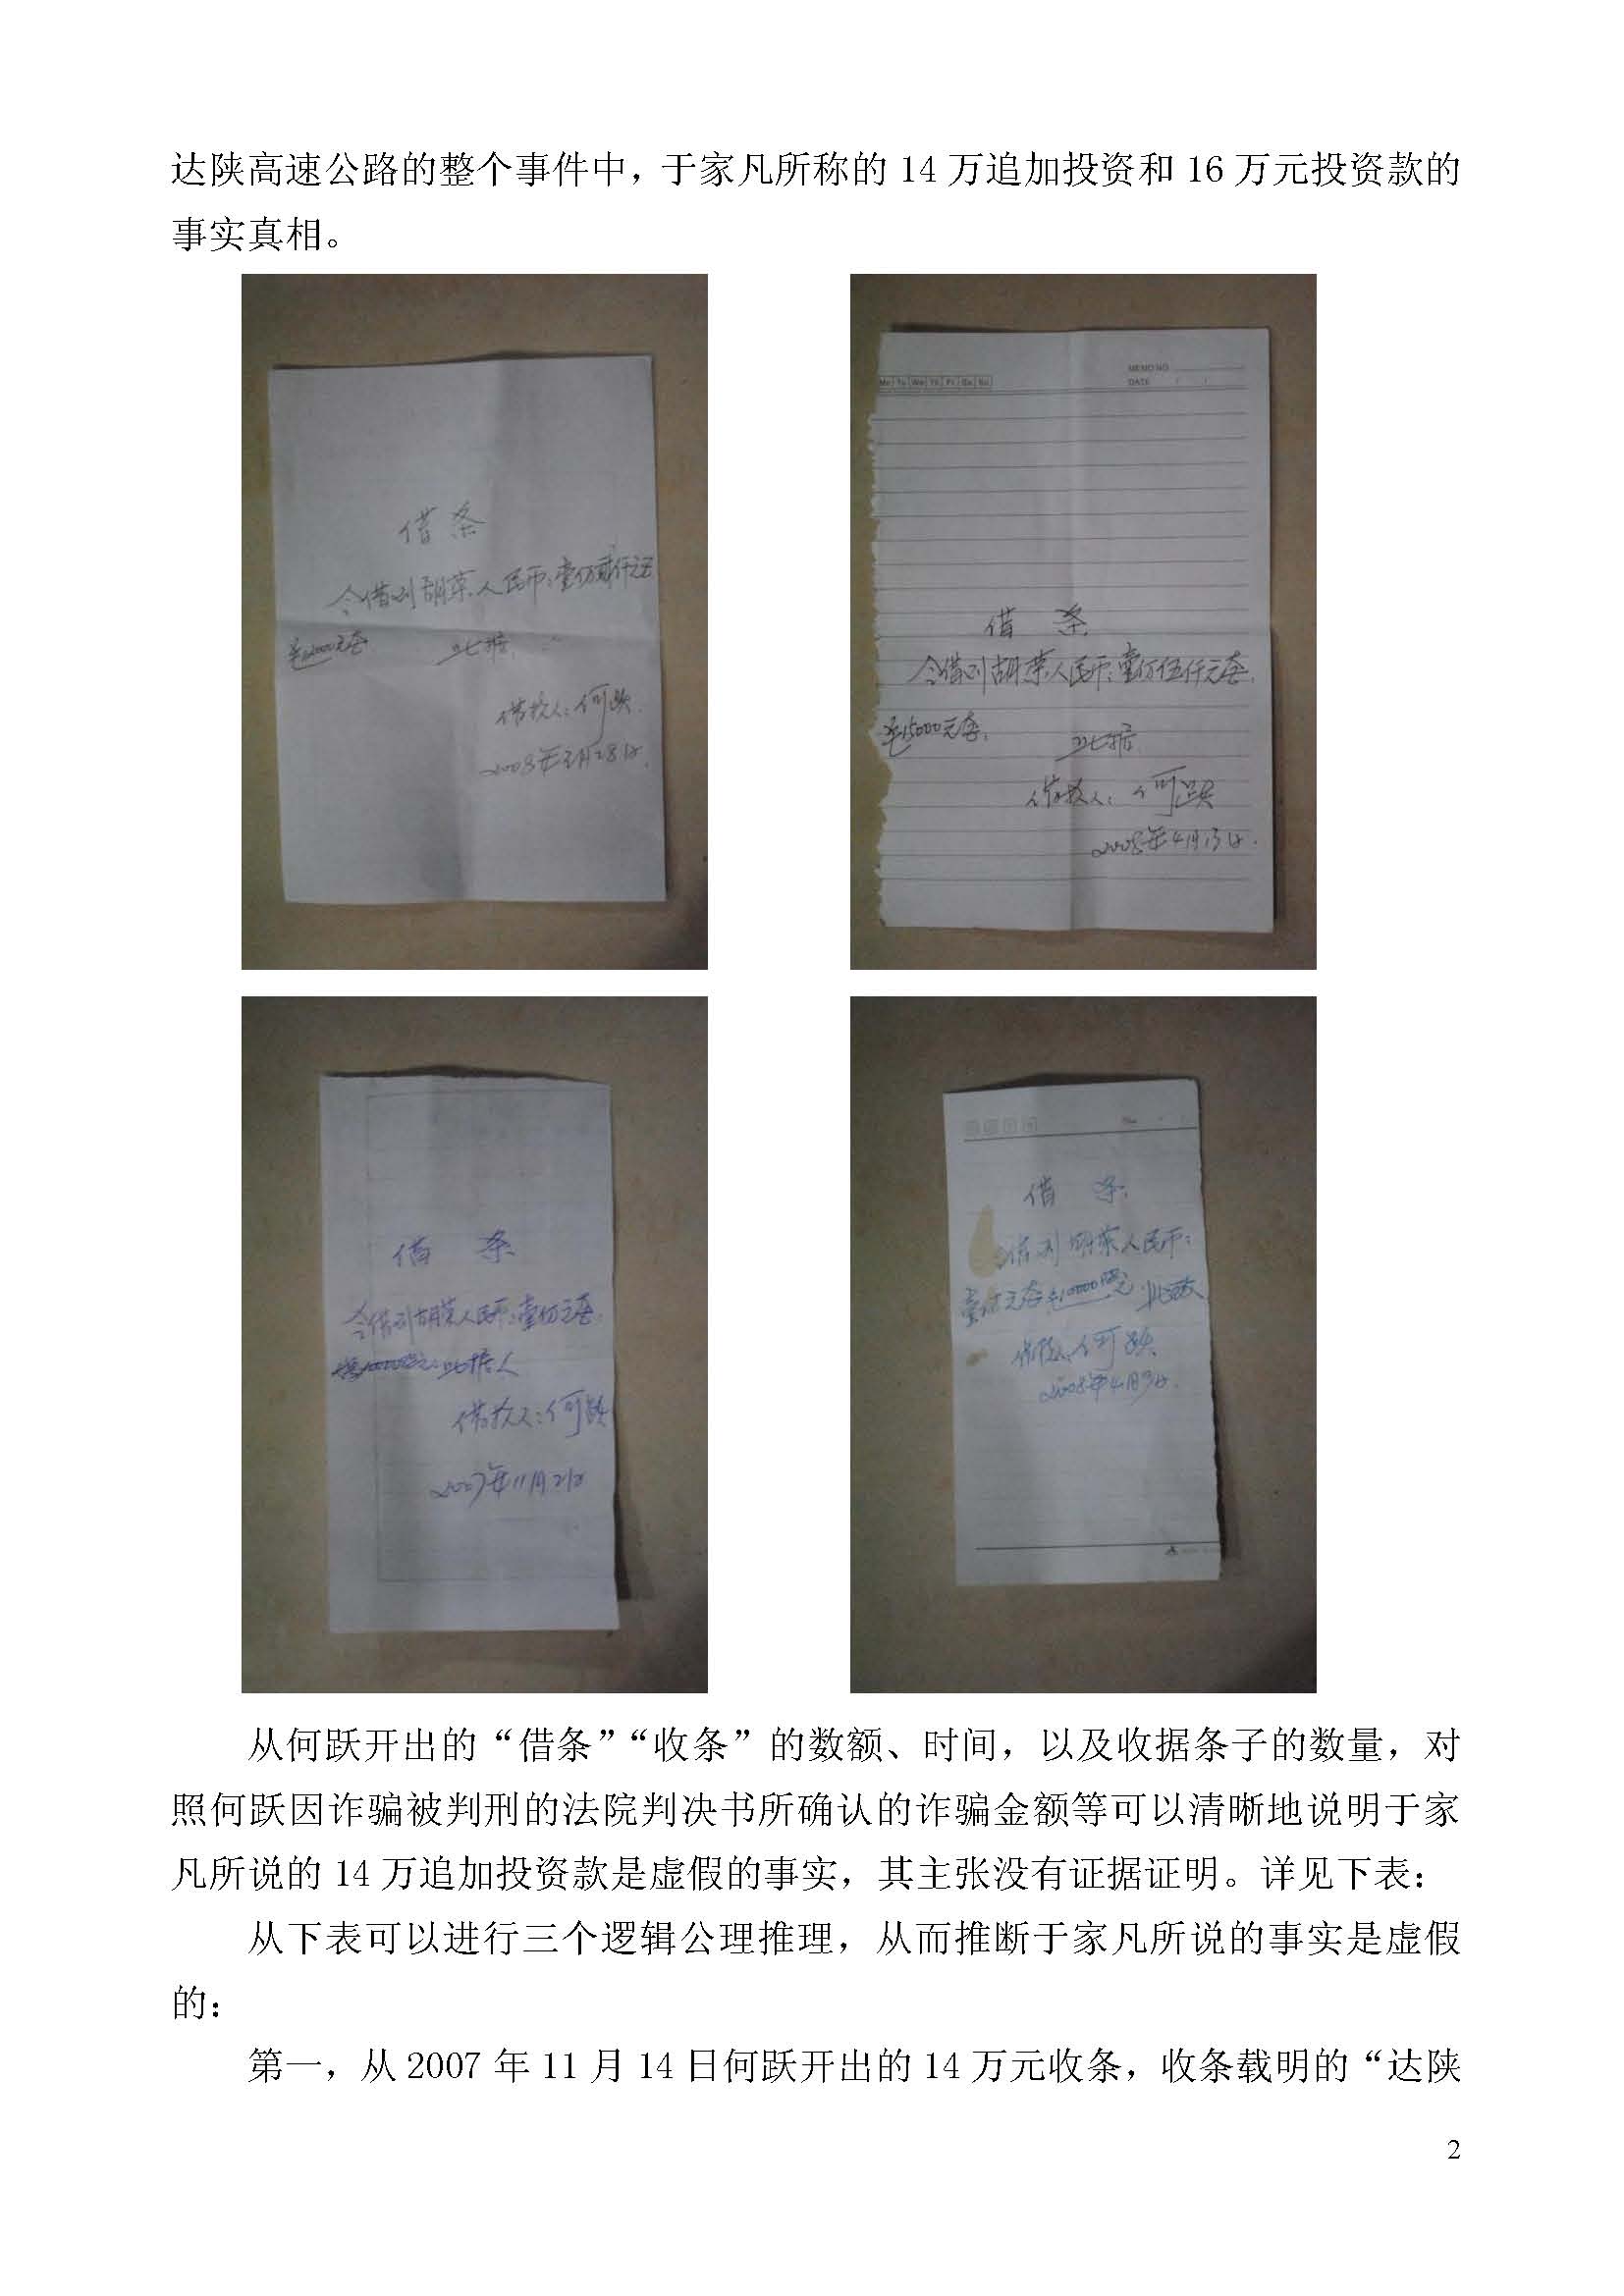 达陕高速公路的整个事件中，于家凡所称的 14 万追加投资和 16 万元投资款的
事实真相。
借条
今借到胡荣人民币：壹仿贰仟元
12000元
此据
借款人：何跃
2008年3月28日
Mo Tu We Th Fr Sa Su
MEMO NO.
DATE / /
借条
今借到胡荣人民币：壹仿伍仟元
15000元
此据
借款人：何跃
2008年4月13日
借条
今借到胡荣人民币：壹仿元
此据
借款人：何跃
2007年11月2日
借条
今借到胡荣人民币：
10000
借款人：何跃
2008年4月9日
从何跃开出的“借条”“收条”的数额、时间，以及收据条子的数量，对
照何跃因诈骗被判刑的法院判决书所确认的诈骗金额等可以清晰地说明于家
凡所说的 14 万追加投资款是虚假的事实，其主张没有证据证明。详见下表：
从下表可以进行三个逻辑公理推理，从而推断于家凡所说的事实是虚假
的：
第一，从 2007 年 11 月 14 日何跃开出的 14 万元收条，收条载明的“达陕
2